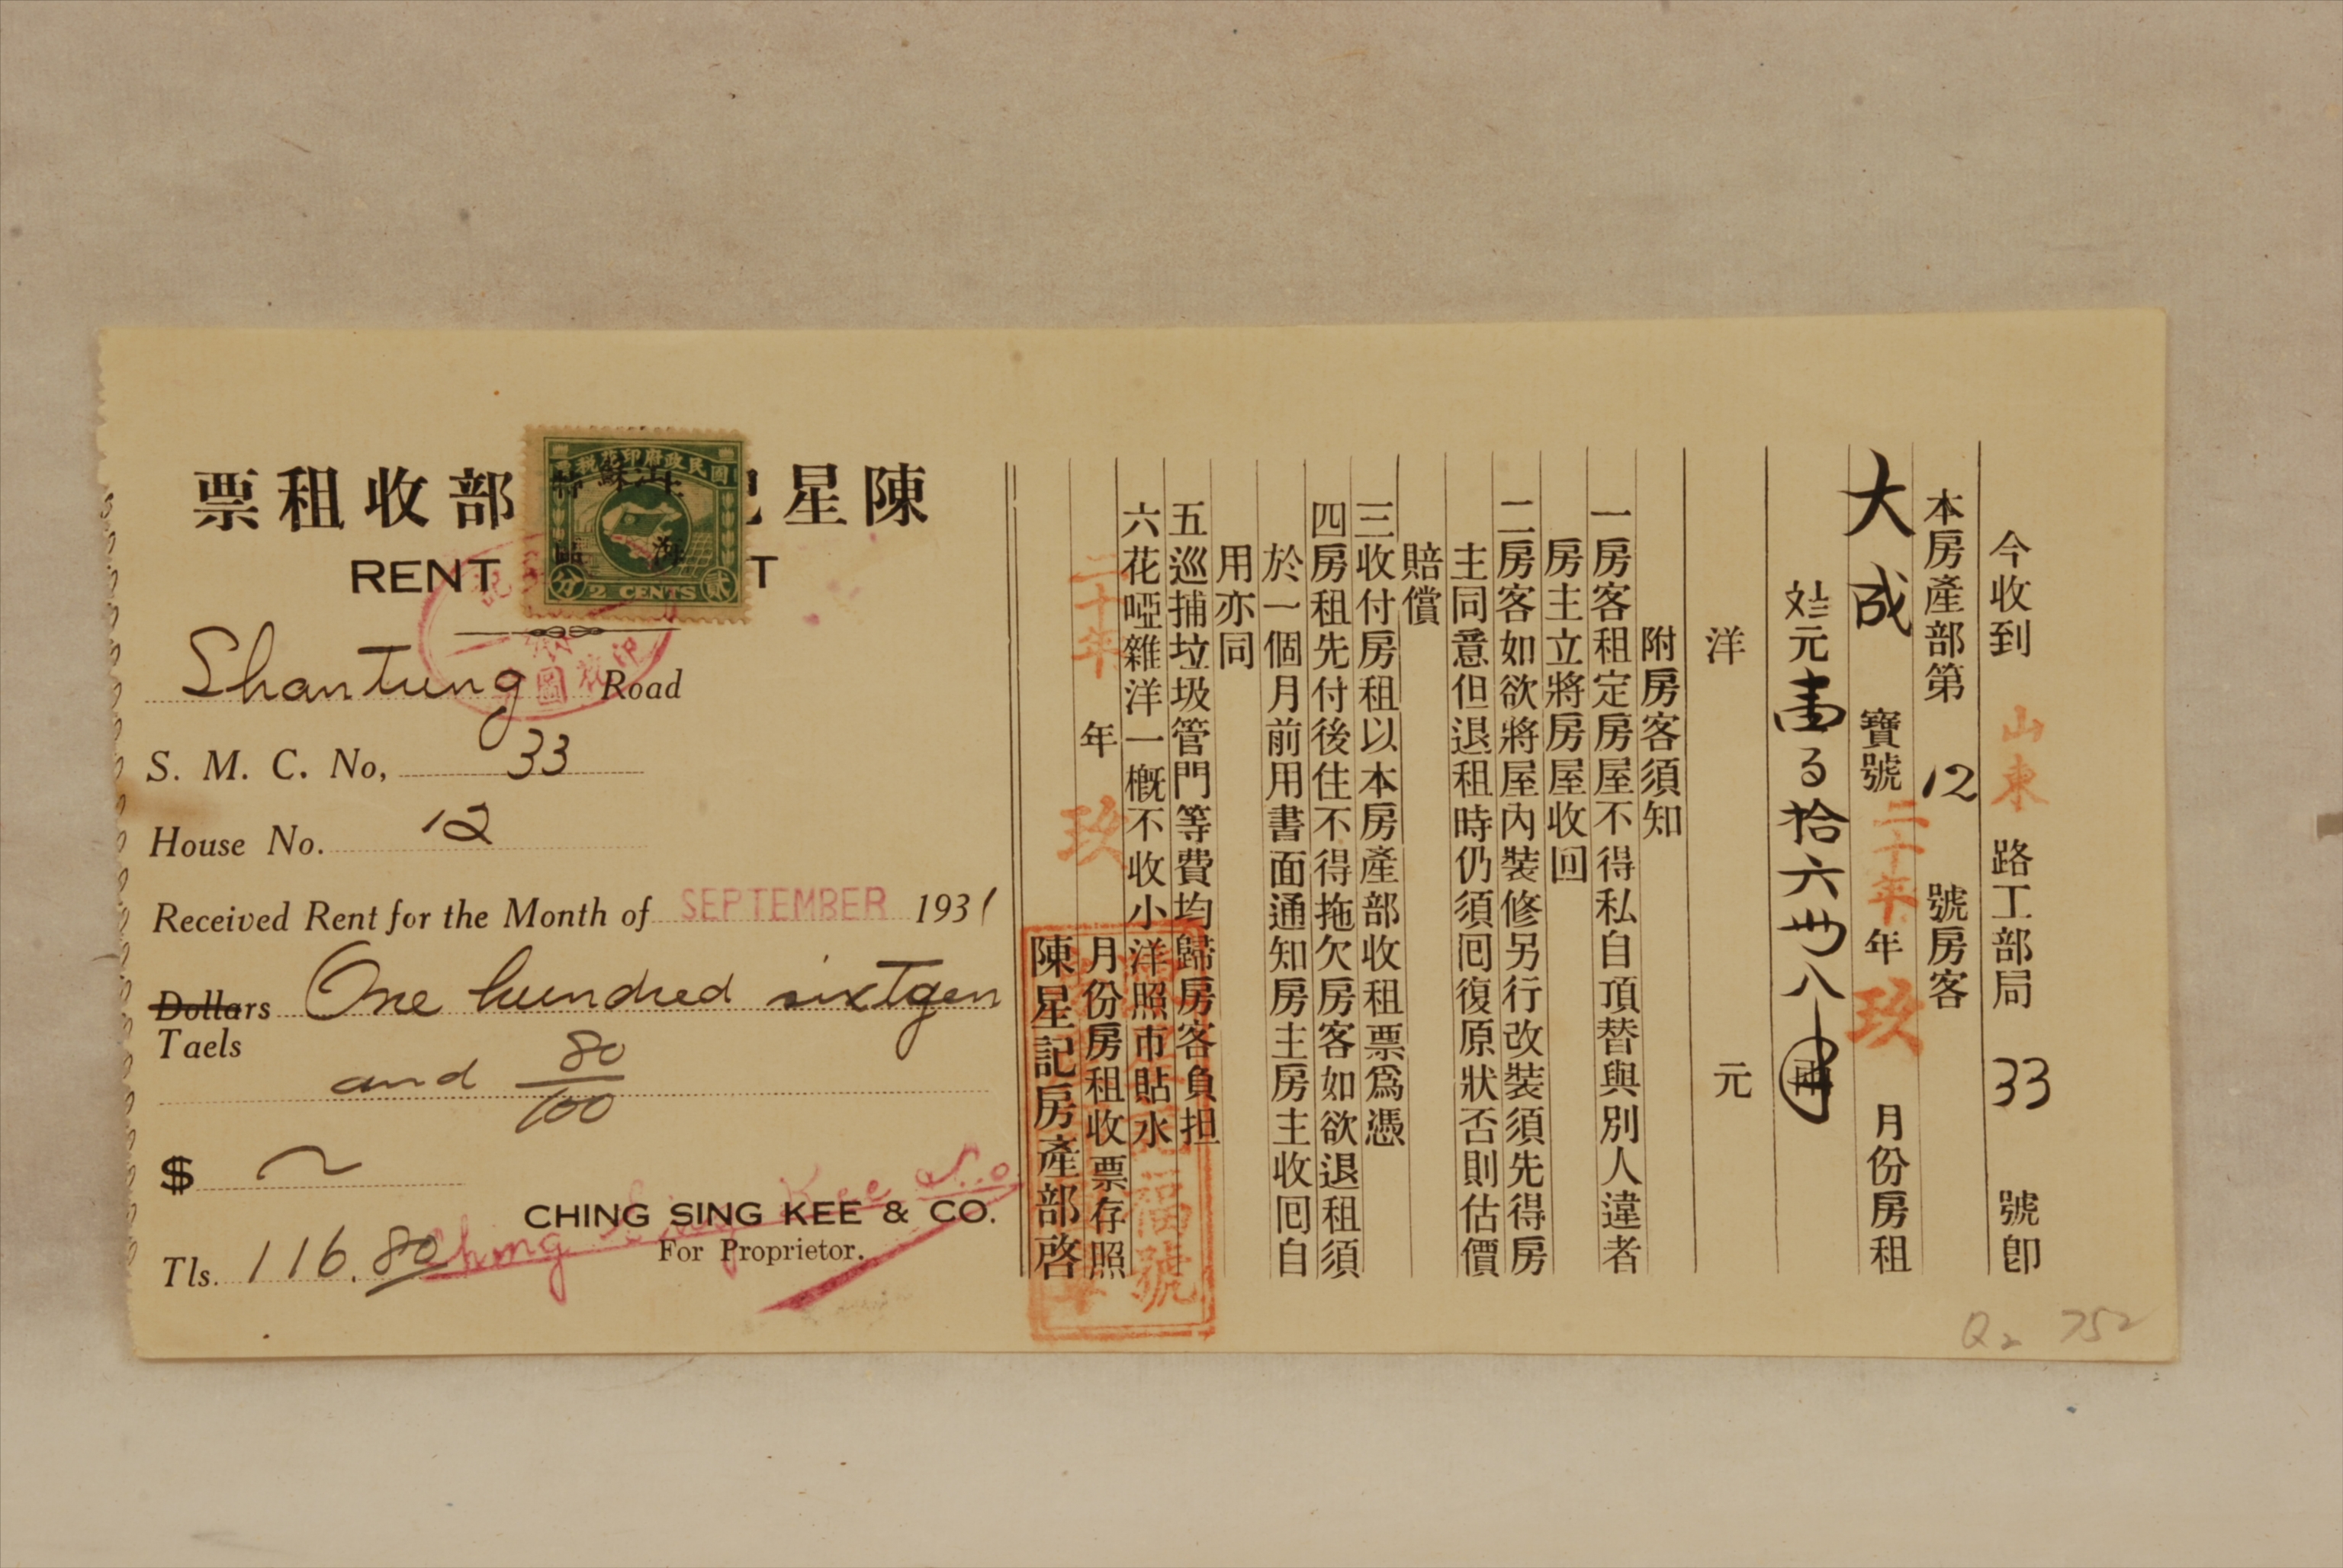 陳星記 部收租票
RENT T
國民政府印花稅票
江蘇
上海
特區
貳分
2 CENTS
Shantung Road
S. M. C. No, 33
House No. 12
Received Rent for the Month of SEPTEMBER 1931
Dollars One hundred sixteen
Taels
and 80/100
$ ~
CHING SING KEE & CO.
For Proprietor.
Tls. 116.80
Ching Sing Kee & Co
今收到 山東 路工部局 33 號卽
本房產部第 12 號房客
大成 寶號 二十年 年 玖 月份房租
元 拾六 八
洋 元
附房客須知
一房客租定房屋不得私自頂替與別人違者
房主立將房屋收回
二房客如欲將屋內裝修另行改裝須先得房
主同意但退租時仍須囘復原狀否則估價
賠償
三收付房租以本房產部收租票爲憑
四房租先付後住不得拖欠房客如欲退租須
於一個月前用書面通知房主房主收囘自
用亦同
五巡捕垃圾管門等費均歸房客負担
六花啞雜洋一概不收小洋照市貼水
二十年 年 玖 月份房租收票存照
陳星記房產部啓
福號
Q2 752